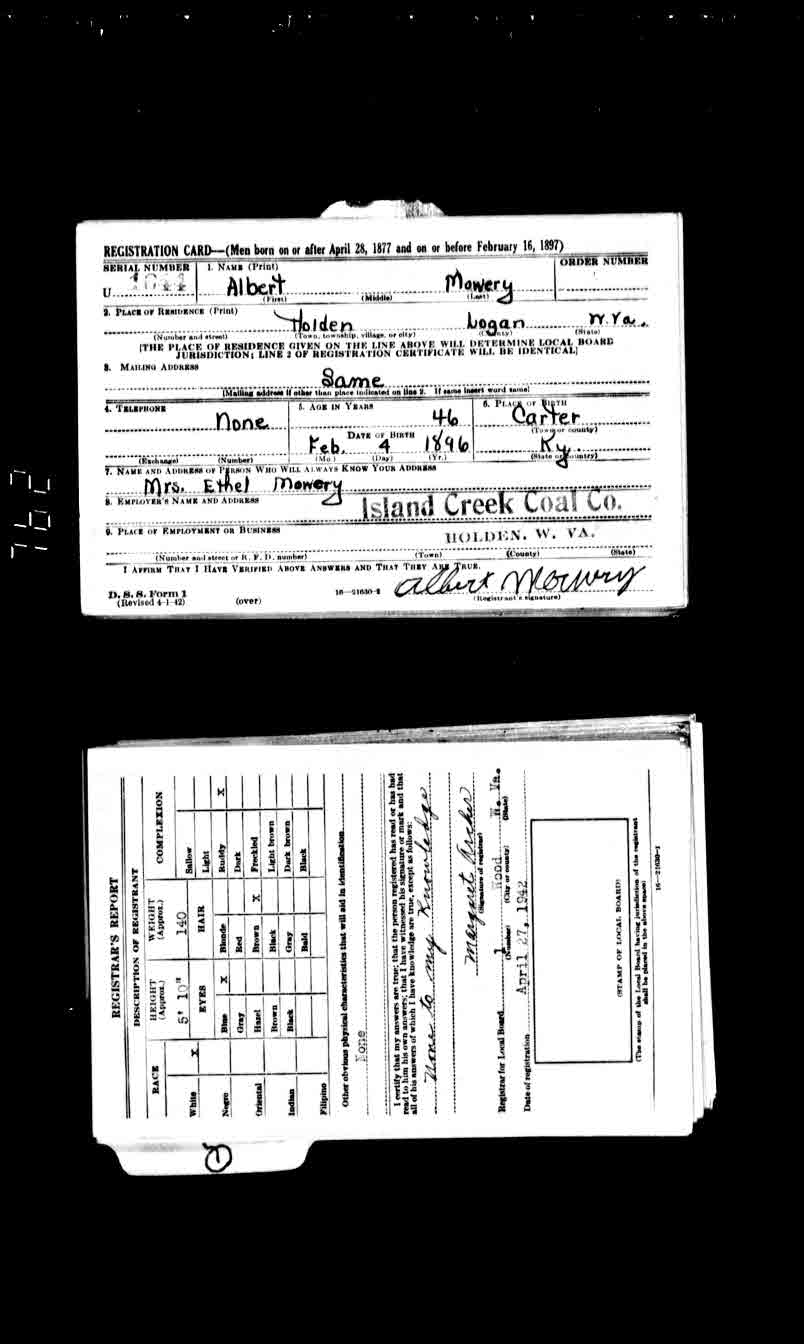 REGISTRATION CARD—(Men born on or after April 28, 1877 and on or before February 16, 1897)
SERIAL NUMBER 1. NAME (Print) ORDER NUMBER
U Albert Mowery
(First) (Middle) (Last)
2. PLACE OF RESIDENCE (Print)
Holden Logan W.Va.
(Number and street) (Town, township, village, or city) (County) (State)
[THE PLACE OF RESIDENCE GIVEN ON THE LINE ABOVE WILL DETERMINE LOCAL BOARD
JURISDICTION; LINE 2 OF REGISTRATION CERTIFICATE WILL BE IDENTICAL]
3. MAILING ADDRESS
Same
[Mailing address if other than place indicated on line 2. If same insert word same]
4. TELEPHONE 5. AGE IN YEARS 6. PLACE OF BIRTH
None 46 Carter
DATE OF BIRTH (Town or county)
Feb. 4 1896 Ky.
(Exchange) (Number) (Mo.) (Day) (Yr.) (State or country)
7. NAME AND ADDRESS OF PERSON WHO WILL ALWAYS KNOW YOUR ADDRESS
Mrs. Ethel Mowery
8. EMPLOYER'S NAME AND ADDRESS Island Creek Coal Co.
9. PLACE OF EMPLOYMENT OR BUSINESS HOLDEN, W. VA.
(Number and street or R. F. D. number) (Town) (County) (State)
I AFFIRM THAT I HAVE VERIFIED ABOVE ANSWERS AND THAT THEY ARE TRUE.
Albert Mowery
D. S. S. Form 1
(Revised 4-1-42) (over) 16—21630-2 (Registrant's signature)
762
REGISTRAR'S REPORT
DESCRIPTION OF REGISTRANT
RACE HEIGHT (Approx.) WEIGHT (Approx.) COMPLEXION
White X 5' 10" 140 Sallow
EYES HAIR Light
Negro Blue X Blonde Ruddy X
Gray Red Dark
Oriental Hazel Brown X Freckled
Brown Black Light brown
Indian Black Gray Dark brown
Bald Black
Filipino
Other obvious physical characteristics that will aid in identification
None
I certify that my answers are true; that the person registered has read or has had
read to him his own answers; that I have witnessed his signature or mark and that
all of his answers of which I have knowledge are true, except as follows:
None to my Knowledge
Margaret Archer
(Signature of registrar)
Registrar for Local Board 1 Wood W. Va.
(Number) (City or county) (State)
Date of registration April 27, 1942
(STAMP OF LOCAL BOARD)
(The stamp of the Local Board having jurisdiction of the registrant
shall be placed in the above space)
16—21630-1
1